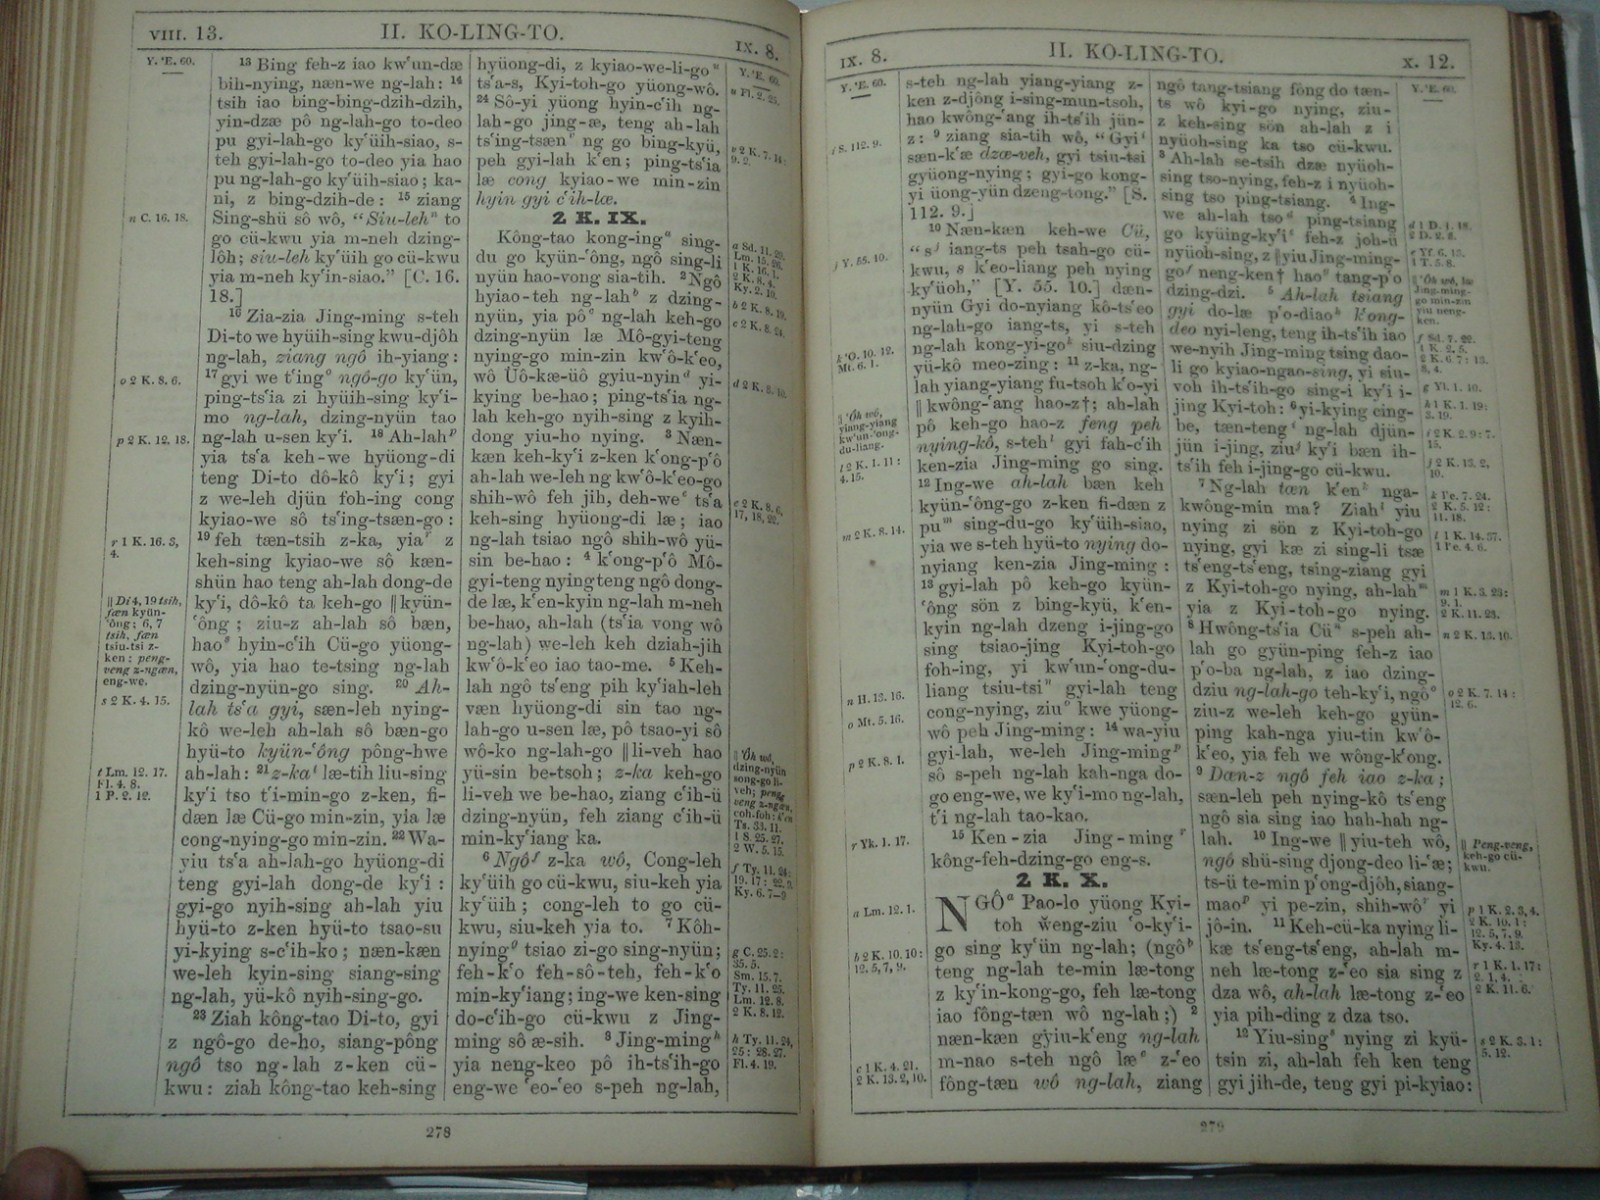 VIII. 13.
II. KO-LING-TO.
IX. 8.
Y. 'E. 60.
n C. 16. 18.
o 2 K. 8. 6.
p 2 K. 12. 18.
r 1 K. 16. 3,
4.
|| Di 4, 19 tsih,
fæn kyün-
'ông; 6, 7
tsih, fæn
tsiu-tsi z-
ken; peng-
veng z-ngæn,
eng-we.
s 2 K. 4. 15.
t Lm. 12. 17.
Fl. 4. 8.
1 P. 2. 12.
13 Bing feh-z iao kw'un-dæ
bih-nying, næn-we ng-lah: 14
tsih iao bing-bing-dzih-dzih,
yin-dzæ pô ng-lah-go to-deo
pu gyi-lah-go ky'üih-siao, s-
teh gyi-lah-go to-deo yia hao
pu ng-lah-go ky'üih-siao; ka-
ni, z bing-dzih-de: 15 ziang
Sing-shü sô wô, “Siu-leh n to
go cü-kwu yia m-neh dzing-
lôh; siu-leh ky'üih go cü-kwu
yia m-neh ky'in-siao.” [C. 16.
18.]
16 Zia-zia Jing-ming s-teh
Di-to we hyüih-sing kwu-djôh
ng-lah, ziang ngô ih-yiang:
17 gyi we t'ing o ngô-go ky'ün,
ping-ts'ia zi hyüih-sing ky'i-
mo ng-lah, dzing-nyün tao
ng-lah u-sen ky'i. 18 Ah-lah p
yia ts'a keh-we hyüong-di
teng Di-to dô-kô ky'i; gyi
z we-leh djün foh-ing cong
kyiao-we sô ts'ing-tsæn-go:
19 feh tæn-tsih z-ka, yia r z
keh-sing kyiao-we sô kæn-
shün hao teng ah-lah dong-de
ky'i, dô-kô ta keh-go || kyün-
'ông; ziu-z ah-lah sô bæn,
hao s hyin-c'ih Cü-go yüong-
wô, yia hao te-tsing ng-lah
dzing-nyün-go sing. 20 Ah-
lah ts'a gyi, sæn-leh nying-
kô we-leh ah-lah sô bæn-go
hyü-to kyün-'ông pông-hwe
ah-lah: 21 z-ka t læ-tih liu-sing
ky'i tso t'i-min-go z-ken, fi-
dæn læ Cü-go min-zin, yia læ
cong-nying-go min-zin. 22 Wa-
yiu ts'a ah-lah-go hyüong-di
teng gyi-lah dong-de ky'i:
gyi-go nyih-sing ah-lah yiu
hyü-to z-ken hyü-to tsao-su
yi-kying s-c'ih-ko; næn-kæn
we-leh kyin-sing siang-sing
ng-lah, yü-kô nyih-sing-go.
23 Ziah kông-tao Di-to, gyi
z ngô-go de-ho, siang-pông
ngô tso ng-lah z-ken cü-
kwu: ziah kông-tao keh-sing
hyüong-di, z kyiao-we-li-go u
ts'a-s, Kyi-toh-go yüong-wô.
24 Sô-yi yüong hyin-c'ih ng-
lah-go jing-æ, teng ah-lah
ts'ing-tsæn v ng go bing-kyü,
peh gyi-lah k'en; ping-ts'ia
læ cong kyiao-we min-zin
hyin gyi c'ih-læ.
2 K. IX.
Kông-tao kong-ing a sing-
du go kyün-'ông, ngô sing-li
nyün hao-vong sia-tih. 2 Ngô
hyiao-teh ng-lah b z dzing-
nyün, yia pô c ng-lah keh-go
dzing-nyün læ Mô-gyi-teng
nying-go min-zin kw'ô-k'eo,
wô Üô-kæ-üô gyiu-nyin d yi-
kying be-hao; ping-ts'ia ng-
lah keh-go nyih-sing z kyih-
dong yiu-ho nying. 3 Næn-
kæn keh-ky'i z-ken k'ong-p'ô
ah-lah we-leh ng kw'ô-k'eo-go
shih-wô feh jih, deh-we e ts'a
keh-sing hyüong-di læ; iao
ng-lah tsiao ngô shih-wô yü-
sin be-hao: 4 k'ong-p'ô Mô-
gyi-teng nying teng ngô dong-
de læ, k'en-kyin ng-lah m-neh
be-hao, ah-lah (ts'ia vong wô
ng-lah) we-leh keh dziah-jih
kw'ô-k'eo iao tao-me. 5 Keh-
lah ngô ts'eng pih ky'iah-leh
væn hyüong-di sin tao ng-
lah-go u-sen læ, pô tsao-yi sô
wô-ko ng-lah-go || li-veh hao
yü-sin be-tsoh; z-ka keh-go
li-veh we be-hao, ziang c'ih-ü
dzing-nyün, feh ziang c'ih-ü
min-ky'iang ka.
6 Ngô f z-ka wô, Cong-leh
ky'üih go cü-kwu, siu-keh yia
ky'üih; cong-leh to go cü-
kwu, siu-keh yia to. 7 Kôh-
nying g tsiao zi-go sing-nyün;
feh-k'o feh-sô-teh, feh-k'o
min-ky'iang; ing-we ken-sing
do-c'ih-go cü-kwu z Jing-
ming sô æ-sih. 8 Jing-ming h
yia neng-keo pô ih-ts'ih-go
eng-we 'eo-'eo s-peh ng-lah,
Y. 'E. 60.
u Fl. 2. 25.
v 2 K. 7. 14:
9. 2.
a Sd. 11. 29.
Lm. 15. 26.
1 K. 16. 1.
2 K. 8. 4.
Ky. 2. 10.
b 2 K. 8. 19.
c 2 K. 8. 24.
d 2 K. 8. 10.
e 2 K. 8. 6,
17, 18, 22.
|| 'Ôh wô,
dzing-nyün
song-go li-
veh; peng-
veng z-ngæn,
Ts. 33. 11.
1 S. 25. 27.
2 W. 5. 15.
f Ty. 11. 24:
19. 17: 22. 9.
Ky. 6. 7-9
g C. 25. 2:
35. 5.
Sm. 15. 7.
Ty. 11. 25.
Lm. 12. 8.
2 K. 8. 12.
h Ty. 11. 24,
25: 28. 27.
Fl. 4. 19.
278
IX. 8.
II. KO-LING-TO.
X. 12.
Y. 'E. 60.
i S. 112. 9.
j Y. 55. 10.
k 'O. 10. 12.
Mt. 6. 1.
|| 'Ôh wô,
yiang-yiang
kw'un-'ong-
du-liang.
l 2 K. 1. 11:
4. 15.
m 2 K. 8. 14.
n H. 13. 16.
o Mt. 5. 16.
p 2 K. 8. 1.
r Yk. 1. 17.
a Lm. 12. 1.
b 2 K. 10. 10:
12. 5, 7, 9.
c 1 K. 4. 21.
2 K. 13. 2, 10.
s-teh ng-lah yiang-yiang z-
ken z-djông i-sing-mun-tsoh,
hao kwông-'ang ih-ts'ih jün-
z: 9 ziang sia-tih wô, “Gyi i
sæn-k'æ dzæ-veh, gyi tsiu-tsi
gyüong-nying; gyi-go kong-
yi üong-yün dzeng-tong.” [S.
112. 9.]
10 Næn-kæn keh-we Cü,
“s j iang-ts peh tsah-go cü-
kwu, s k'eo-liang peh nying
ky'üoh,” [Y. 55. 10.] dæn-
nyün Gyi do-nyiang kô-ts'eo
ng-lah-go iang-ts, yi s-teh
ng-lah kong-yi-go k siu-dzing
yü-kô meo-zing: 11 z-ka, ng-
lah yiang-yiang fu-tsoh k'o-yi
|| kwông-'ang hao-z†; ah-lah
pô keh-go hao-z feng peh
nying-kô, s-teh l gyi fah-c'ih
ken-zia Jing-ming go sing.
12 Ing-we ah-lah bæn keh
kyün-'ông-go z-ken fi-dæn z
pu m sing-du-go ky'üih-siao,
yia we s-teh hyü-to nying do-
nyiang ken-zia Jing-ming:
13 gyi-lah pô keh-go kyün-
'ông sön z bing-kyü, k'en-
kyin ng-lah dzeng i-jing-go
sing tsiao-jing Kyi-toh-go
foh-ing, yi kw'un-'ong-du-
liang tsiu-tsi n gyi-lah teng
cong-nying, ziu o kwe yüong-
wô peh Jing-ming: 14 wa-yiu
gyi-lah, we-leh Jing-ming p
sô s-peh ng-lah kah-nga do-
go eng-we, we ky'i-mo ng-lah,
t'i ng-lah tao-kao.
15 Ken-zia Jing-ming r
kông-feh-dzing-go eng-s.
2 K. X.
NGÔ a Pao-lo yüong Kyi-
toh weng-ziu 'o-ky'i-
go sing ky'ün ng-lah; (ngô b
teng ng-lah te-min læ-tong
z ky'in-kong-go, feh læ-tong
iao fông-tæn wô ng-lah;) 2
næn-kæn gyiu-k'eng ng-lah
m-nao s-teh ngô læ c z-'eo
fông-tæn wô ng-lah, ziang
ngô tang-tsiang fông do tæn-
ts wô kyi-go nying, ziu-
z keh-sing sön ah-lah z i
nyüoh-sing ka tso cü-kwu.
3 Ah-lah se-tsih dzæ nyüoh-
sing tso-nying, feh-z i nyüoh-
sing tso ping-tsiang. 4 Ing-
we ah-lah tso d ping-tsiang
go kyüing-ky'i e feh-z joh-ü
nyüoh-sing, z || yiu Jing-ming-
go f neng-ken† hao g tang-p'o
dzing-dzi. 5 Ah-lah tsiang
gyi do-læ p'o-diao h k'ong-
deo nyi-leng, teng ih-ts'ih iao
we-nyih Jing-ming tsing dao-
li go kyiao-ngao-sing, yi siu-
voh ih-ts'ih-go sing-i ky'i i-
jing Kyi-toh: 6 yi-kying cing-
be, tæn-teng i ng-lah djün-
jün i-jing, ziu j ky'i bæn ih-
ts'ih feh i-jing-go cü-kwu.
7 Ng-lah tæn k'en k nga-
kwông-min ma? Ziah l yiu
nying zi sön z Kyi-toh-go
nying, gyi kæ zi sing-li tsæ
ts'eng-ts'eng, tsing-ziang gyi
z Kyi-toh-go nying, ah-lah m
yia z Kyi-toh-go nying.
8 Hwông-ts'ia Cü n s-peh ah-
lah go gyün-ping feh-z iao
p'o-ba ng-lah, z iao dzing-
dziu ng-lah-go teh-ky'i, ngô o
ziu-z we-leh keh-go gyün-
ping kah-nga yiu-tin kw'ô-
k'eo, yia feh we wông-k'ong.
9 Dæn-z ngô feh iao z-ka;
sæn-leh peh nying-kô ts'eng
ngô sia sing iao hah-hah ng-
lah. 10 Ing-we || yiu-teh wô,
ngô shü-sing djong-deo li-'æ;
ts-ü te-min p'ong-djôh, siang-
mao p yi pe-zin, shih-wô r yi
jô-in. 11 Keh-cü-ka nying li-
kæ ts'eng-ts'eng, ah-lah m-
neh læ-tong z-'eo sia sing z
dza wô, ah-lah læ-tong z-'eo
yia pih-ding z dza tso.
12 Yiu-sing s nying zi kyü-
tsin zi, ah-lah feh ken teng
gyi jih-de, teng gyi pi-kyiao:
Y. 'E. 60.
d 1 D. 1. 18.
2 D. 2. 3.
e Yf. 6. 13.
1 T. 5. 8.
|| 'Ôh wô, læ
Jing-ming-
go min-zin
yiu neng-
ken.
g Yl. 1. 10.
h 1 K. 1. 19:
3. 19.
i 2 K. 2. 9: 7.
15.
j 2 K. 13. 2,
10.
k Ys. 7. 24.
2 K. 5. 12:
11. 18.
l 1 K. 14. 37.
1 Ys. 4. 6.
m 1 K. 3. 23:
9. 1.
2 K. 11. 23.
n 2 K. 13. 10.
o 2 K. 7. 14:
12. 6.
|| Peng-veng,
keh-go cü-
kwu.
p 1 K. 2. 3, 4.
2 K. 10. 1:
12. 5, 7, 9.
Ky. 4. 13.
r 1 K. 1. 17:
2. 1, 4.
2 K. 11. 6.
s 2 K. 3. 1:
5. 12.
279